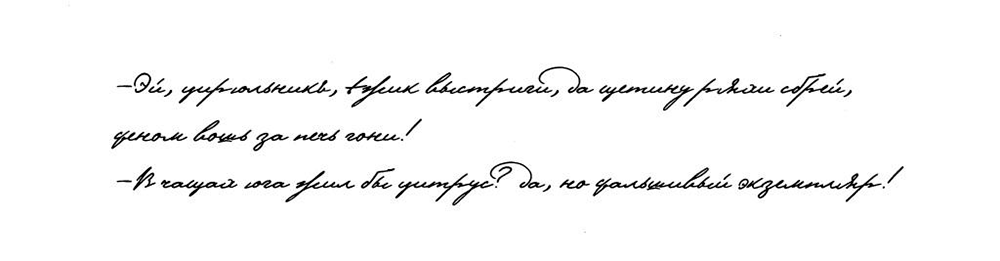 —Эй, цирюльникъ, ёжик выстриги, да щетину ряхи сбрей,
феном вошь за печь гони!
—В чащах юга жил бы цитрус? Да, но фальшивый экземпляр!